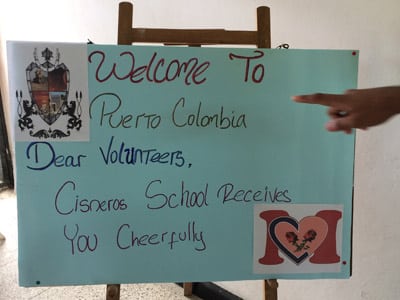 Welcome To
Puerto Colombia
Dear Volunteers,
Cisneros School Receives
You Cheerfully